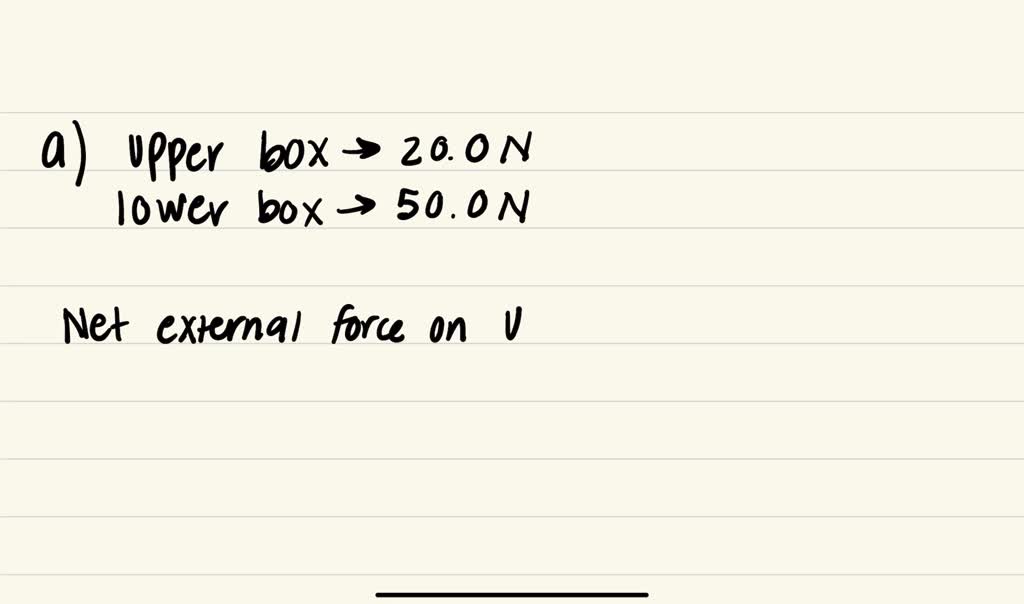 a) Upper box → 20.0 N
lower box → 50.0 N
Net external force on U